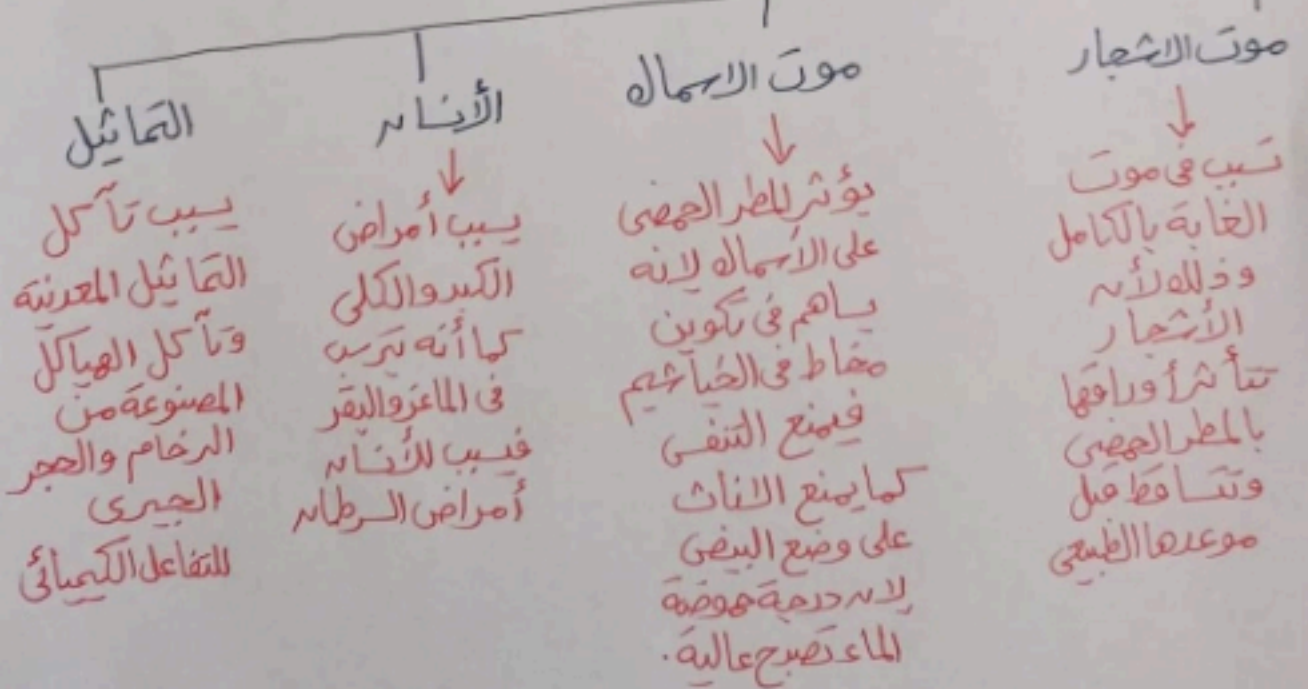 موت الاشجار
تسبب فى موت
الغابة بالكامل
وذلك لأن
الأشجار
تتأثر أوراقها
بالمطر الحمضى
وتتساقط قبل
موعدها الطبيعى
موت الاسماك
يؤثر المطر الحمضى
على الأسماك لانه
يساهم فى تكوين
مخاط فى الخياشيم
فيمنع التنفس
كما يمنع الاناث
على وضع البيض
لان درجة حموضة
الماء تصبح عالية.
الأنسان
يسبب أمراض
الكبد والكلى
كما أنه يترسب
فى الماعز والبقر
فيسبب للأنسان
أمراض السرطان
التماثيل
يسبب تآكل
التماثيل المعدنية
وتآكل الهياكل
المصنوعة من
الرخام والحجر
الجيرى
للتفاعل الكيميائى